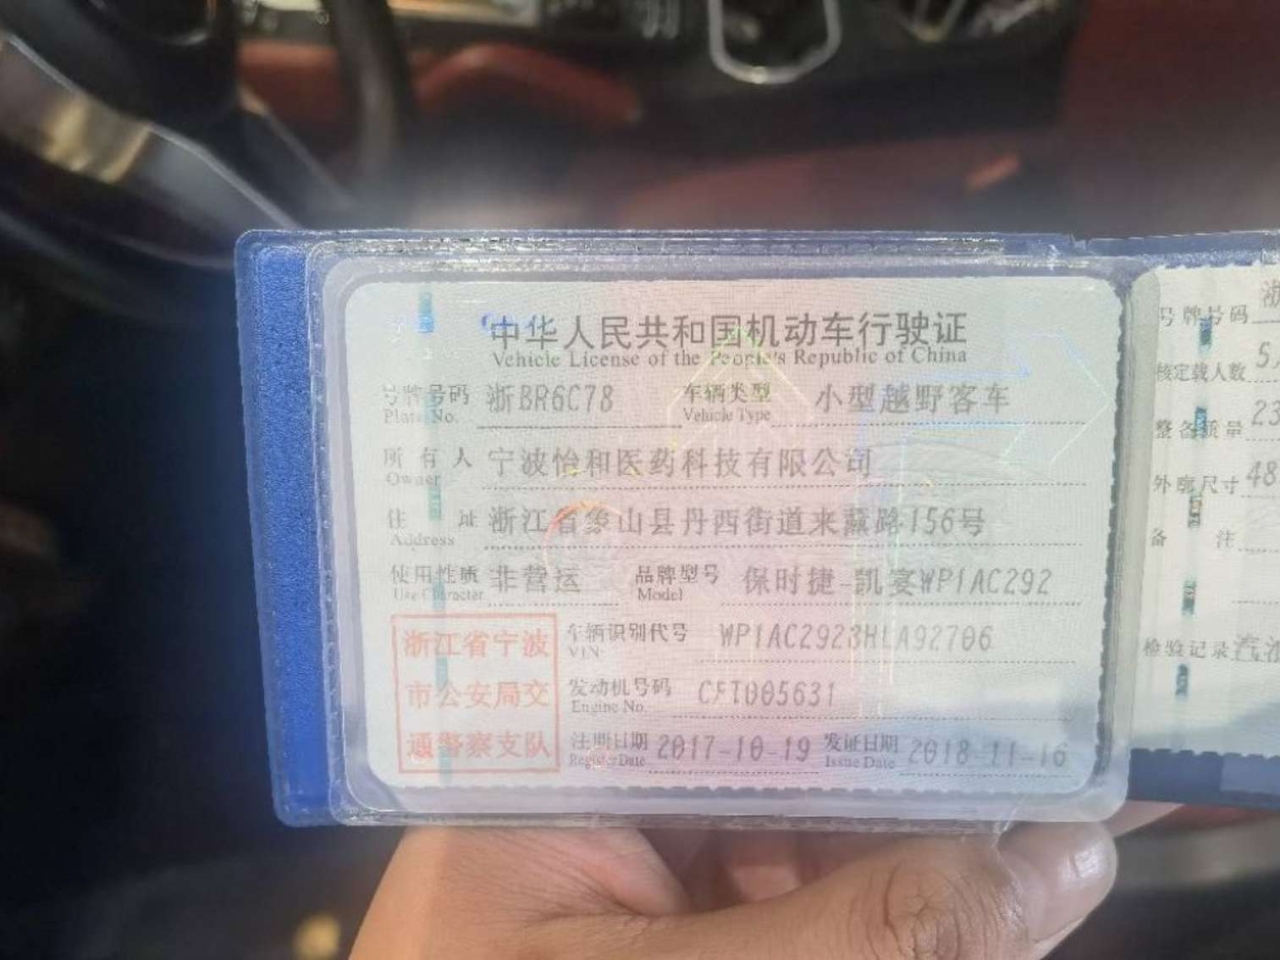 中华人民共和国机动车行驶证
Vehicle License of the People's Republic of China
号牌号码 浙BR6C78 车辆类型 小型越野客车
Plate No. Vehicle Type
所有人 宁波怡和医药科技有限公司
Owner
住址 浙江省象山县丹西街道来薰路156号
Address
使用性质 非营运 品牌型号 保时捷-凯宴WP1AC292
Use Character Model
浙江省宁波
市公安局交
通警察支队
车辆识别代号 WP1AC2923HLA92706
VIN
发动机号码 CFT005631
Engine No.
注册日期 2017-10-19 发证日期 2018-11-16
Register Date Issue Date
号牌号码 浙
核定载人数 5
整备质量 23
外廓尺寸 48
备注
检验记录